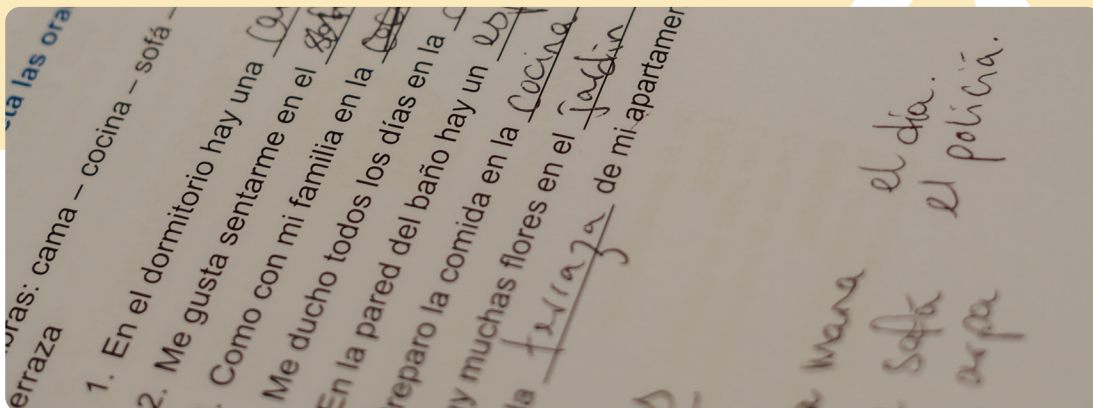 las
bras: cama – cocina – sofá –
erraza
1. En el dormitorio hay una
2. Me gusta sentarme en el sofá
Como con mi familia en la
Me ducho todos los días en la
En la pared del baño hay un
reparo la comida en la cocina
y muchas flores en el jardín
la terraza de mi apartamen
el día.
el policía.
mana
sofá
arpa